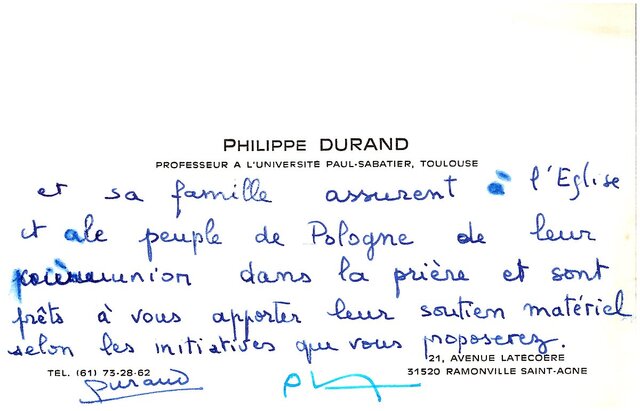 PHILIPPE DURAND
PROFESSEUR A L'UNIVERSITE PAUL-SABATIER, TOULOUSE
et sa famille assurent à l'Eglise
et ale peuple de Pologne de leur
communion dans la prière et sont
prêts à vous apporter leur soutien matériel
selon les initiatives que vous proposerez.
21, AVENUE LATECOERE
TEL. (61) 73-28-62 31520 RAMONVILLE SAINT-AGNE
Durand